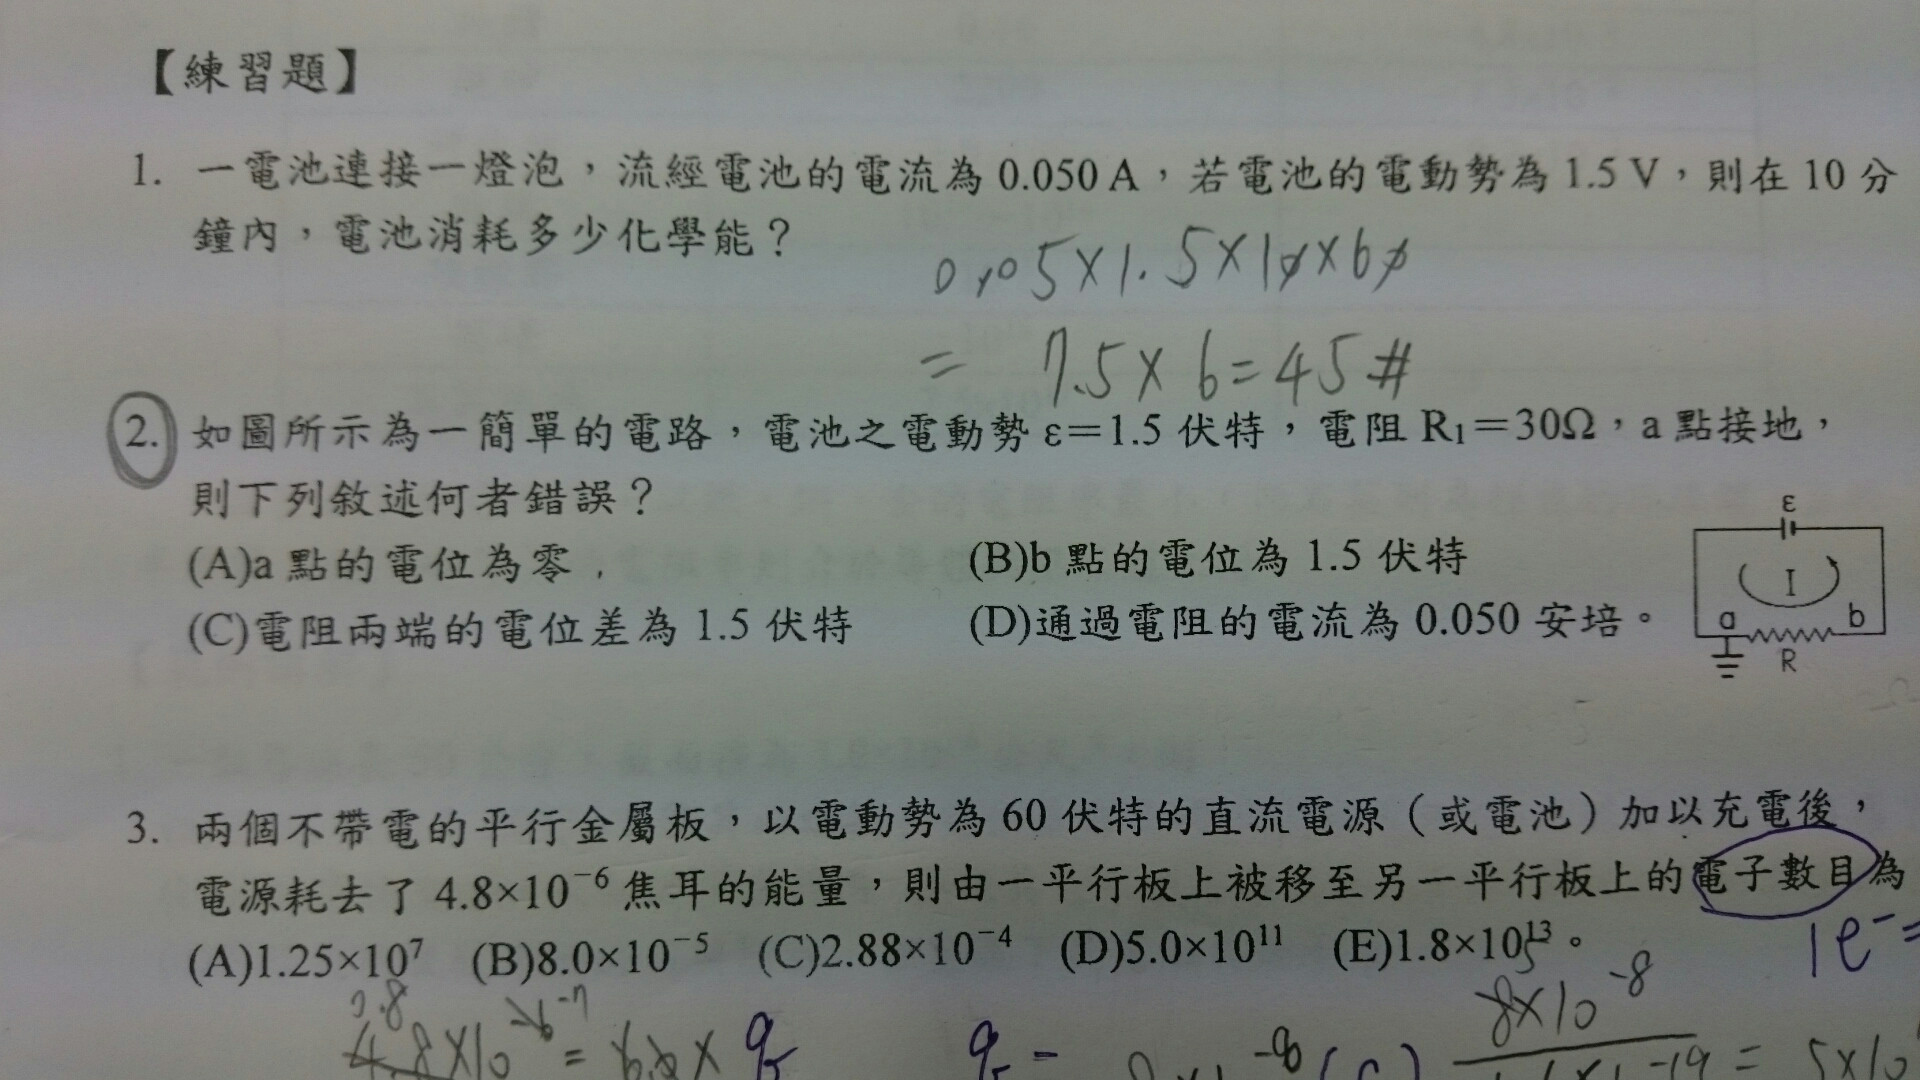 【練習題】
1. 一電池連接一燈泡，流經電池的電流為 0.050 A，若電池的電動勢為 1.5 V，則在 10 分
鐘內，電池消耗多少化學能？
0.05×1.5×10×60
= 7.5×6=45#
2. 如圖所示為一簡單的電路，電池之電動勢 ε＝1.5 伏特，電阻 R₁＝30Ω，a 點接地，
則下列敘述何者錯誤？
(A)a 點的電位為零． (B)b 點的電位為 1.5 伏特
(C)電阻兩端的電位差為 1.5 伏特 (D)通過電阻的電流為 0.050 安培。
ε
I
a b
R
3. 兩個不帶電的平行金屬板，以電動勢為 60 伏特的直流電源（或電池）加以充電後，
電源耗去了 4.8×10⁻⁶ 焦耳的能量，則由一平行板上被移至另一平行板上的電子數目為
(A)1.25×10⁷ (B)8.0×10⁻⁵ (C)2.88×10⁻⁴ (D)5.0×10¹¹ (E)1.8×10¹³。
1e⁻=
0.8
8×10⁻⁸
= 5×10